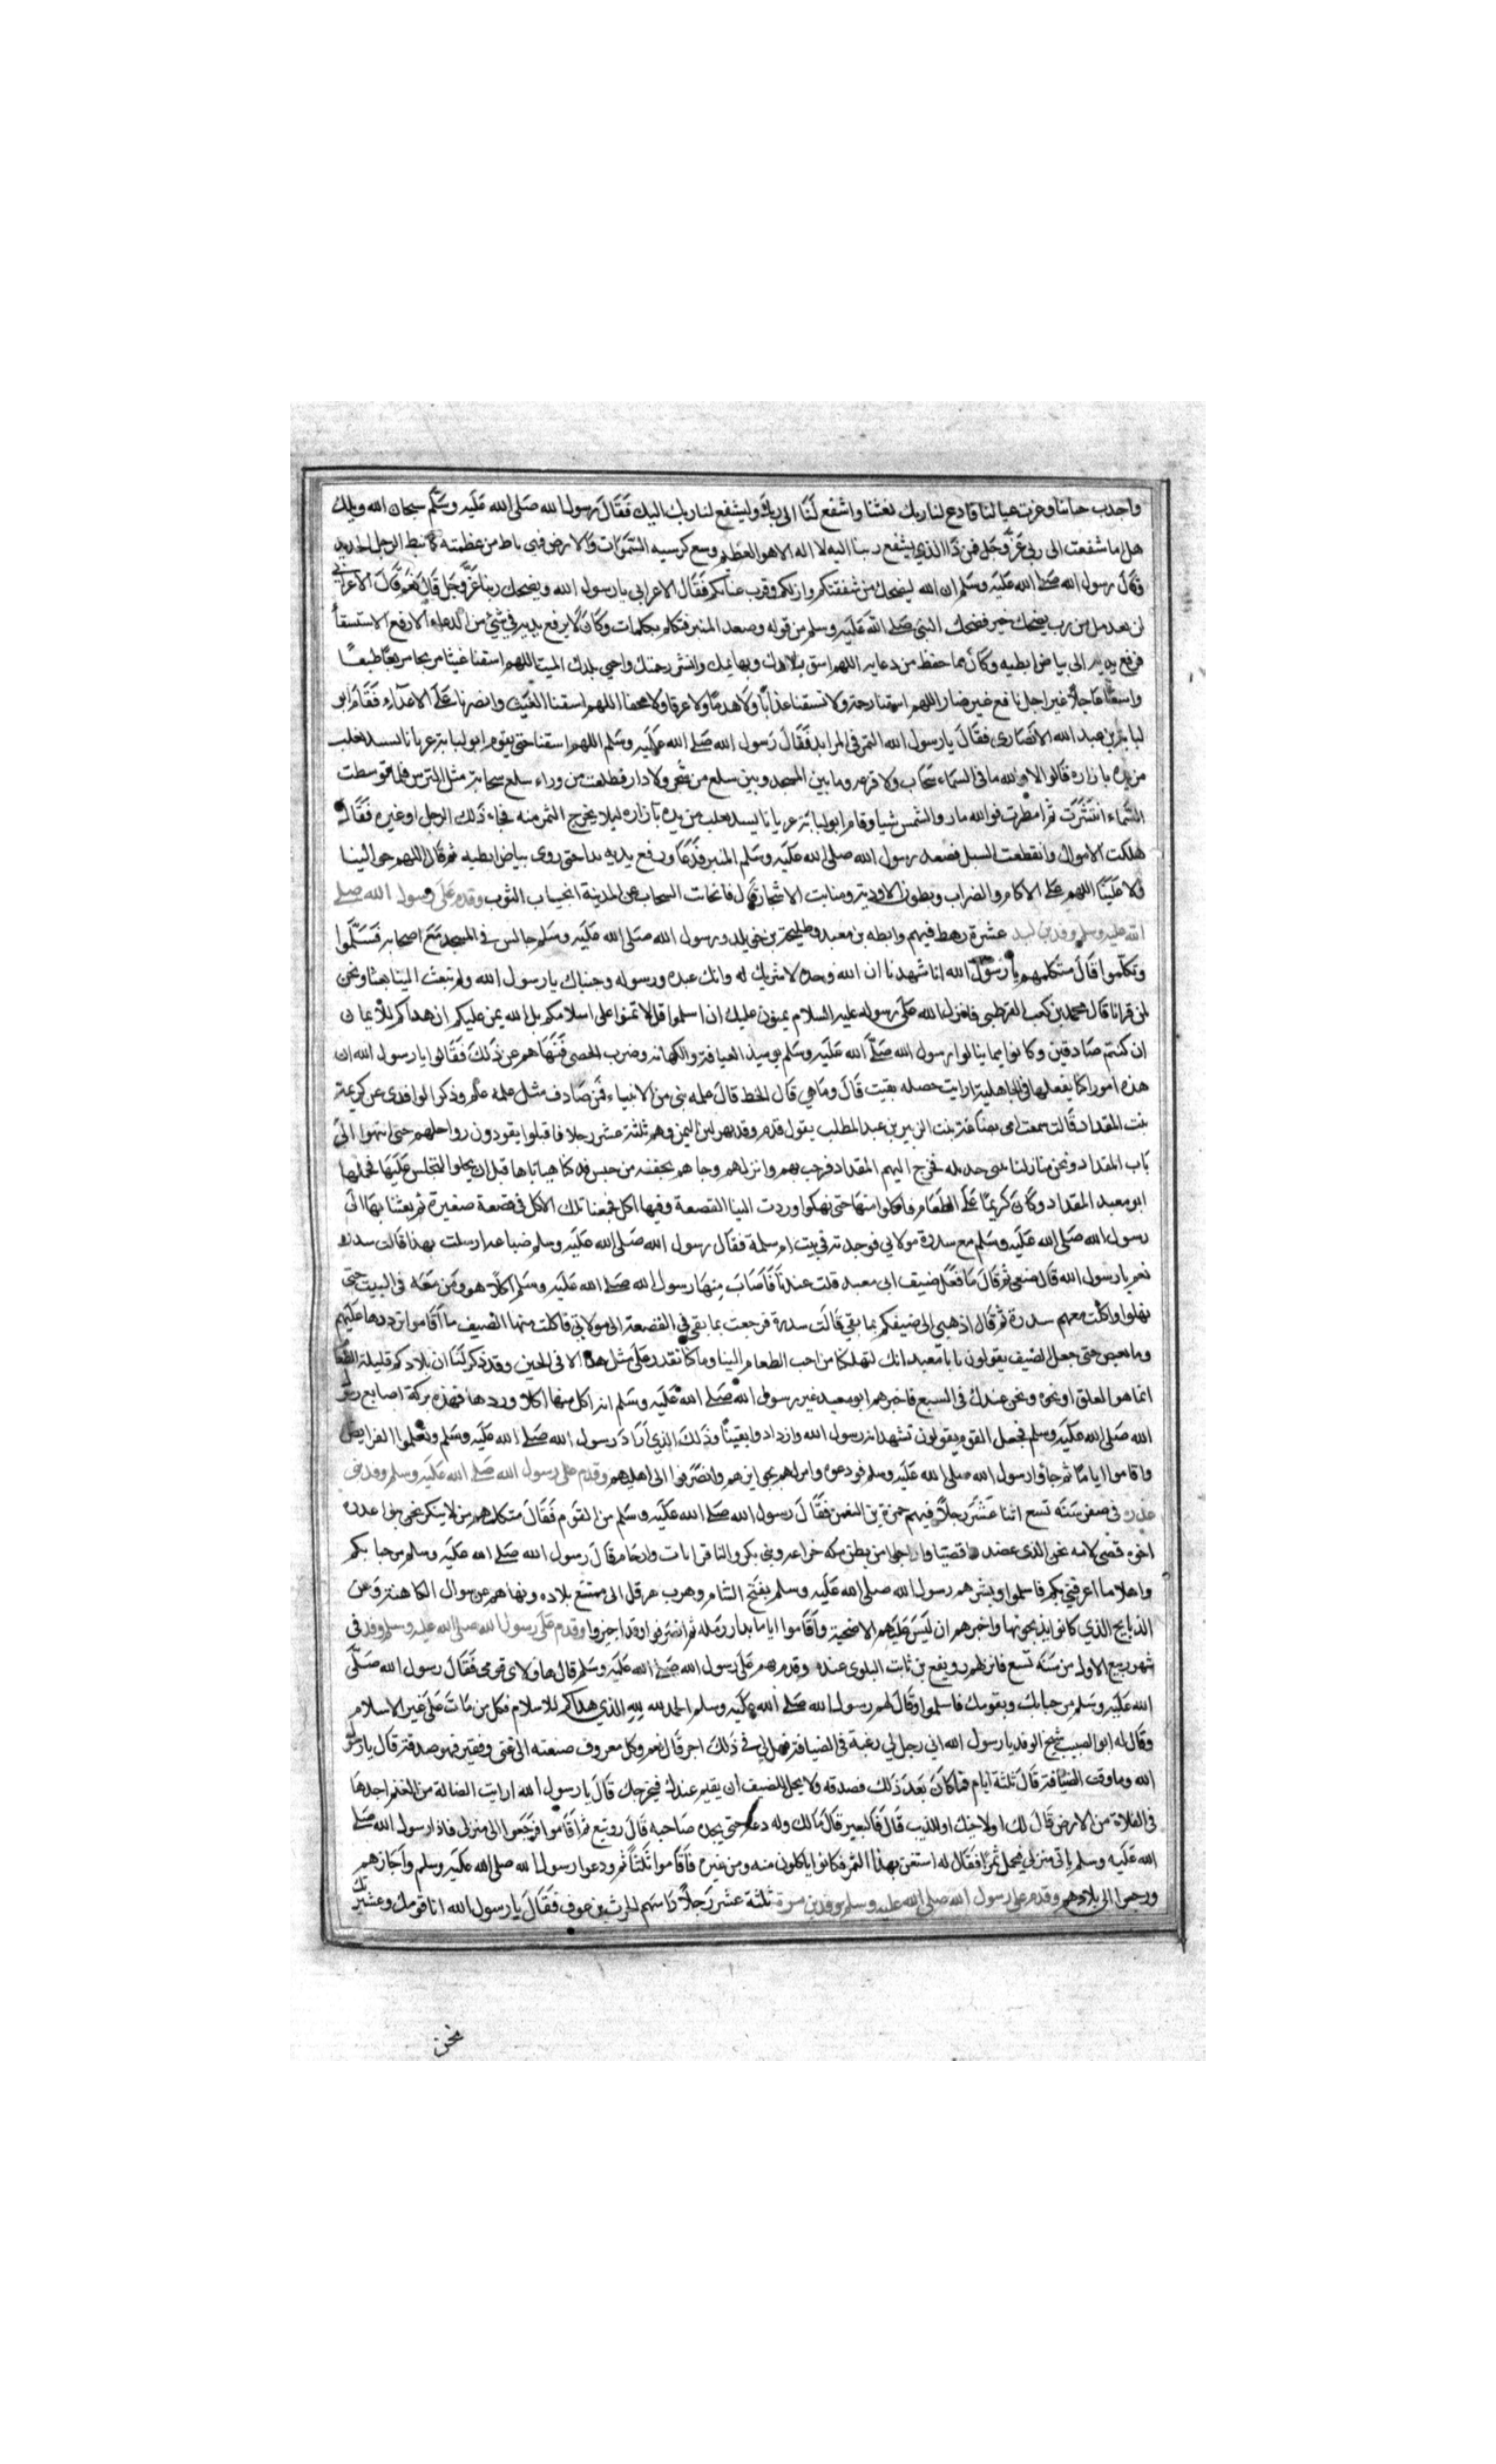 واجدب جنابنا وغرثت عيالنا فادع لنا ربك يغثنا واشفع لنا الى ربك وليشفع لنا ربك اليك فقال رسول الله صلى الله عليه وسلم سبحان الله ويلك
هل ما شفعت الى ربي عز وجل فمن ذا الذي يشفع ربنا اليه لا اله الا هو العظيم وسع كرسيه السموات والارض فهي ياط من عظمته كما يئط الرجل الجديد
وقال رسول الله صلى الله عليه وسلم ان الله ليضحك من شفقتكم وازلكم وقرب غياثكم فقال الاعرابي يا رسول الله ويضحك ربنا عز وجل قال نعم قال الاعرابي
لن نعدمك من رب يضحك خير فضحك النبي صلى الله عليه وسلم من قوله وصعد المنبر فتكلم بكلمات وكان لا يرفع يديه في شيء من الدعاء الا رفع الاستسقا
فرفع يديه الى بياض ابطيه وكان مما حفظ من دعايه اللهم اسق بلادك وبهايمك وانشر رحمتك واحيي بلدك الميت اللهم اسقنا غيثا مريعا طبقا
واسعًا عاجلا غير اجل نافع غير ضار اللهم اسقنا رحمة ولا تسقنا عذابا ولا هدما ولا غرقا ولا محقا اللهم اسقنا الغيث وانصرنا على الاعداء فقام ابو
لبابة بن عبد الله الانصارى فقال يا رسول الله التمر في المرابد فقال رسول الله صلى الله عليه وسلم اللهم اسقنا حتى يقوم ابو لبابة عريانا يسد ثعلب
مربده بازاره قالوا لا والله ما في السماء سحاب ولا قزعه وما بين المسجد وبين سلع من شجر ولا دار فطلعت من وراء سلع سحابة مثل الترس فلما توسطت
السماء انتشرت ثم امطرت فوالله ما روا الشمس شيا وقام ابو لبابة عريانا يسد ثعلب مربده بازاره ليلا يخرج التمر منه فجاء ذلك الرجل او غيره فقال
هلكت الاموال وانقطعت السبل فصعد رسول الله صلى الله عليه وسلم المنبر فدعا ورفع يديه مدا حتى روى بياض ابطيه ثم قال اللهم حوالينا
ولا علينا اللهم على الاكام والضراب وبطون الاودية ومنابت الاشجار قال فانجابت السحاب عن المدينة انجياب الثوب وقدم على رسول الله صلى
الله عليه وسلم وفد بن اسد عشرة رهط فيهم وابصه بن معبد وطليحة بن خويلد ورسول الله صلى الله عليه وسلم جالس في المسجد مع اصحابه فسلموا
وتكلموا قال متكلمهم يا رسول الله انا شهدنا ان الله وحده لا شريك له وانك عبده ورسوله وجيناك يا رسول الله ولم تبعث الينا بعثا ونحن
لمن قرانا قال محمد بن كعب القرظي فانزل الله على رسوله عليه السلام يمنون عليك ان اسلموا قل لا تمنوا على اسلامكم بل الله يمن عليكم ان هداكم للايمان
ان كنتم صادقين وكانوا مما ينالوا رسول الله صلى الله عليه وسلم يوميذ العيافة والكهانه وضرب الحصى فنهاهم عن ذلك فقالوا يا رسول الله ان
هذه امورا كنا نفعلها في الجاهلية ارايت خصله بقيت قال وما هي قال الخط قال علمه نبى من الانبياء فمن صادف مثل علمه علم وذكر الواقدي عن كريمة
بنت المقداد قالت سمعت امى ضباعة بنت الزبير بن عبد المطلب يقول قدم وفد بهرا من اليمن وهم ثلثة عشر رجلا فاقبلوا يقودون رواحلهم حتى انتهوا الى
باب المقداد ونحن منازلنا ببنى حديله فخرج اليهم المقداد فرحب بهم وانزلهم وجاهم بجفنه من حيس قد كنا هياناها قبل ان يحلوا لنجلس عليها فحملها
ابو معبد المقداد وكان كريما على الطعام فاكلوا منها حتى نهكوا وردت الينا القصعة وفيها اكل فجمعنا تلك الاكل في قصعة صغيرة ثم بعثنا بها الى
رسول الله صلى الله عليه وسلم مع سدرة مولاتي فوجدته في بيت ام سلمة فقال رسول الله صلى الله عليه وسلم ضباعه ارسلت بهذا قالت سدره
نعم يا رسول الله قال ضعى ثم قال ما فعل ضيف ابى معبد قلت عندنا فاصاب منها رسول الله صلى الله عليه وسلم اكلا هو ومن معه في البيت حتى
نهلوا واكلت معهم سدرة ثم قال اذهبي الى ضيفكم بما بقي قالت سدرة فرجعت بما بقى في القصعة الى مولاتي فاكلت منها الضيف ما اقاموا ترددها عليهم
وما تغيض حتى جعل الضيف يقولون يا با معبد انك لتهلكنا من احب الطعام الينا وما كنا نقدر على مثل هذا الا في الحين وقد ذكر لنا ان بلادكم قليلة الطعا
انما هو العلق او نحوه ونحن عندك في الشبع فاخبرهم ابو معبد خبر رسول الله صلى الله عليه وسلم انه اكل منها اكلا وردها فهذه بركة اصابع رسول
الله صلى الله عليه وسلم فجعل القوم يقولون نشهد انه رسول الله وازدادوا يقينا وذلك الذي اراد رسول الله صلى الله عليه وسلم وتعلموا الفرايض
واقاموا اياما ثم جاؤا رسول الله صلى الله عليه وسلم فودعوه وامر لهم بجوايزهم وانصرفوا الى اهليهم وقدم على رسول الله صلى الله عليه وسلم وفد بنى
عذره في صفر سنة تسع اثنا عشر رجلا فيهم حمزة بن النعمن فقال رسول الله صلى الله عليه وسلم من القوم فقال متكلمهم من لا ينكر نحن بنوا عذره
اخوه قصى لامه نحن الذى عضدوا قصيا وازاحوا من بطن مكه خزاعه وبنى بكر ولنا قرابات وارحام قال رسول الله صلى الله عليه وسلم مرحبا بكم
واهلا ما اعرفني بكم فاسلموا وبشرهم رسول الله صلى الله عليه وسلم بفتح الشام وهرب هرقل الى ممتنع بلاده ونهاهم عن سوال الكاهنة وعن
الذبايح الذي كانوا يذبحونها واخبرهم ان ليس عليهم الا ضحية واقاموا اياما بدار رمله ثم انصرفوا وقد اجيزوا وقدم على رسول الله صلى الله عليه وسلم وفد في
شهر ربيع الاول من سنة تسع فانزلهم رويفع بن ثابت البلوى عنده وقدم بهم على رسول الله صلى الله عليه وسلم قال هاولاى قومى فقال رسول الله صلى
الله عليه وسلم مرحبا بك وبقومك فاسلموا وقال لهم رسول الله صلى الله عليه وسلم الحمد لله الذي هداكم للاسلام فكل من مات على غير الاسلام
وقال له ابو الضبيب شيخ الوفد يا رسول الله اني رجل لي رغبة في الضيافة فهل لي في ذلك اجر قال نعم وكل معروف صنعته الى غني وفقير فهو صدقة قال يا رسول
الله وما وقت الضيافة قال ثلثة ايام فما كان بعد ذلك فصدقه ولا يحل للضيف ان يقيم عندك فيحرجك قال يا رسول الله ارايت الضالة من الغنم اجدها
في الفلاة من الارض قال لك او لاخيك او للذيب قال فالبعير قال مالك وله دعه حتى يجده صاحبه قال رويفع ثم اقاموا فرجعوا الى منزلى فاذا رسول الله صلى
الله عليه وسلم ياتي منزلي يحمل تمرا فقال له استعن بهذا التمر فكانوا ياكلون منه ومن غيره فاقاموا ثلثا ثم ودعوا رسول الله صلى الله عليه وسلم واجازهم
ورجعوا الى بلادهم وقدم على رسول الله صلى الله عليه وسلم وفد بن مرة ثلثة عشر رجلا راسهم الحرث بن عوف فقال يا رسول الله انا قومك وعشيرتك
نحن